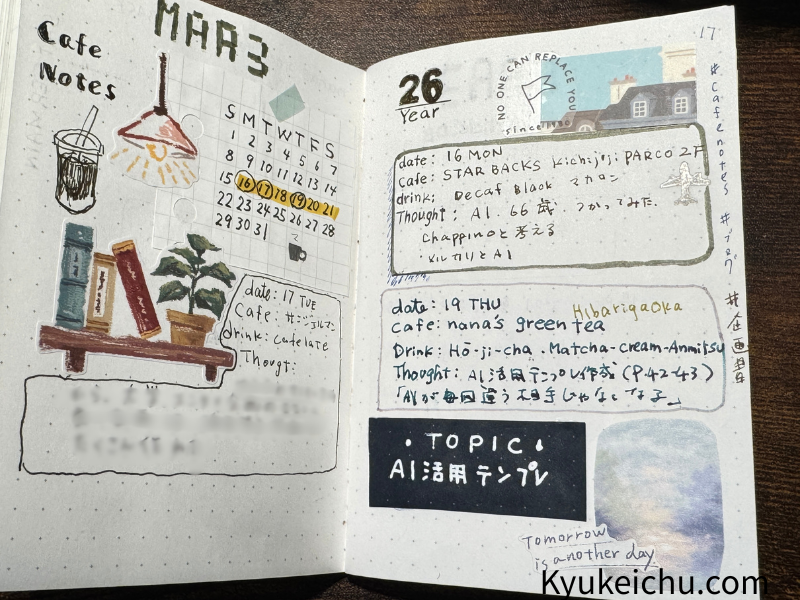 Cafe
Notes
MAR3
S M T W T F S
1 2 3 4 5 6 7
8 9 10 11 12 13 14
15 16 17 18 19 20 21
22 23 24 25 26 27 28
29 30 31
date: 17 TUE
Cafe:
drink: Cafe late
Thougt:
17
26
Year
NO ONE CAN REPLACE YOU
since 1980
date: 16 MON
Cafe: STAR BACKS Kichijoji PARCO 2F
drink: Decaf Black マカロン
Thought: AI. 66歳. うかってみた.
Chappinoと考える
・メルカリとAI
date: 19 THU Hibarigaoka
Cafe: nana's green tea
Drink: Hō-ji-cha . Matcha-cream-Anmitsu
Thought: AI活用テンプレ作成 (P.42-43)
「AIが毎回違う相手じゃなくなる」
#cafenotes #ブログ
#企画
・TOPIC・
AI活用テンプレ
Tomorrow
is another day
Kyukeichu.com